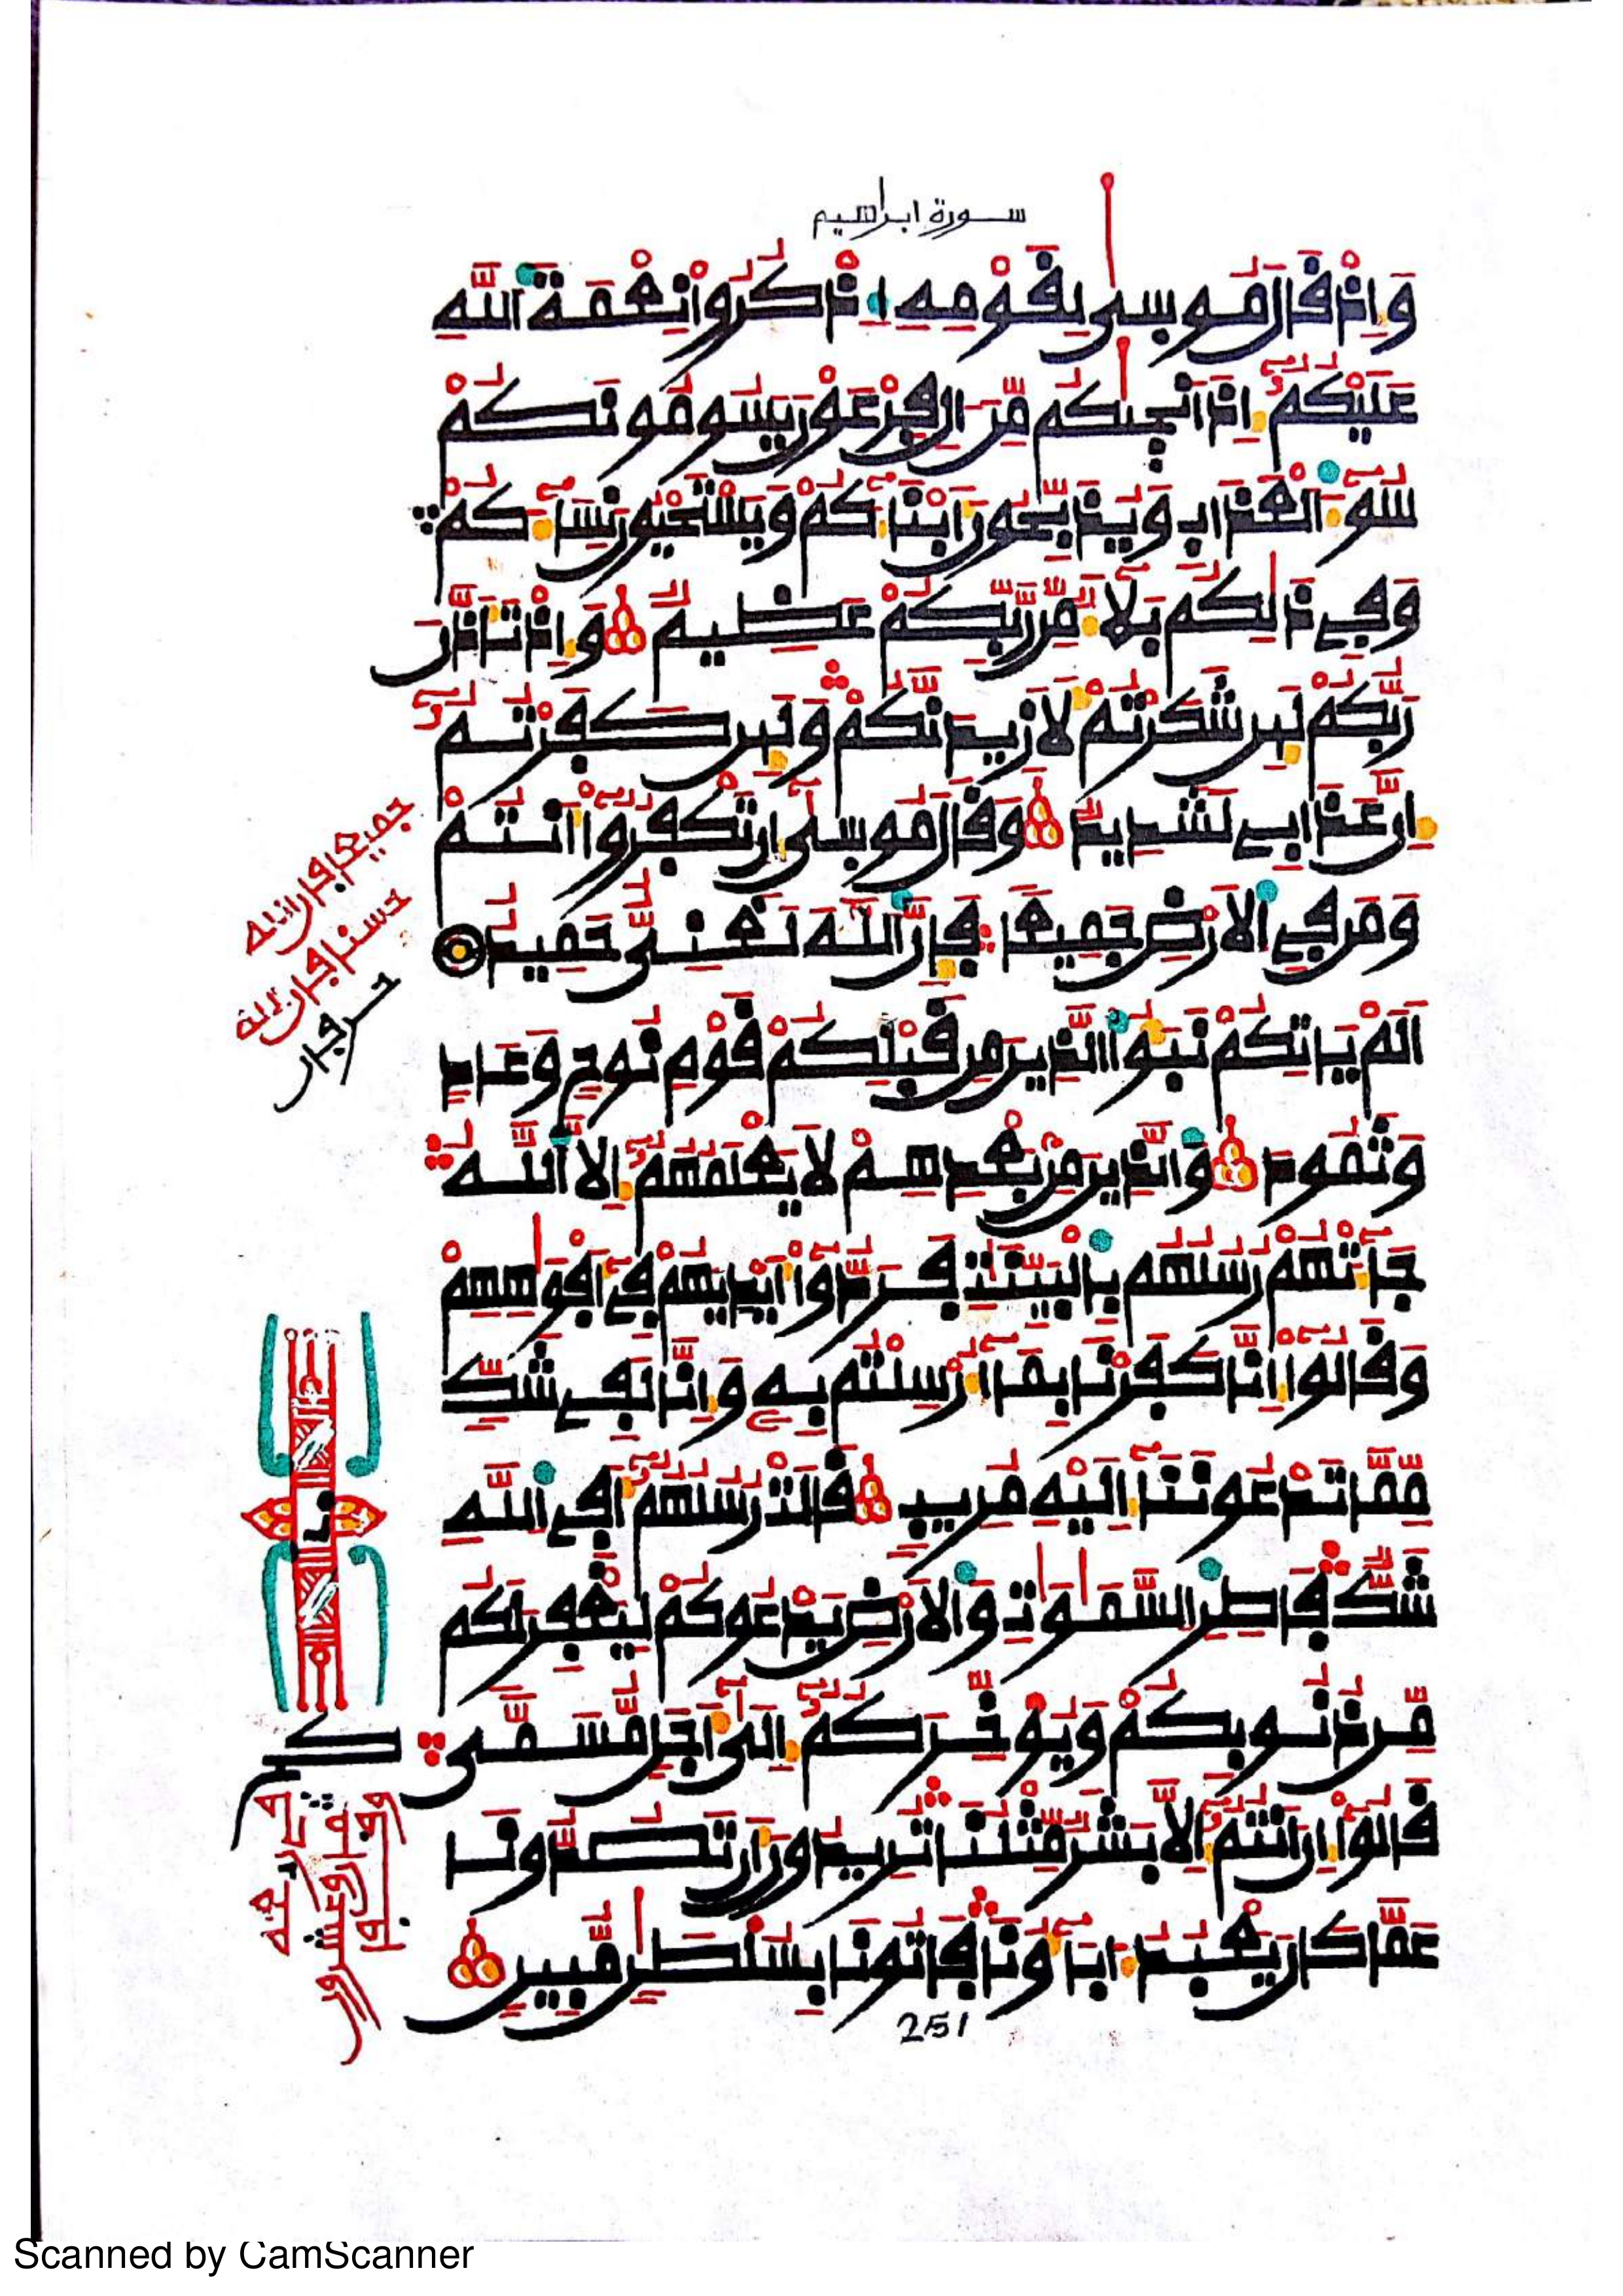 سورة ابراهيم
وَإِذْ قَالَ مُوسىٰ لِقَوْمِهِ اذْكُرُوا نِعْمَةَ اللَّهِ
عَلَيْكُمُ إِذَ انْجىٰكُم مِّنَ الِ فِرْعَوْنَ يَسُومُونَكُمْ
سُوءَ الْعَذَابِ وَيُذَبِّحُونَ أَبْنَاءَكُمْ وَيَسْتَحْيُونَ نِسَاءَكُمْ
وَفِي ذَٰلِكُم بَلَاءٌ مِّن رَّبِّكُمْ عَظِيمٌ وَإِذْ تَأَذَّنَ
رَبُّكُمْ لَئِن شَكَرْتُمْ لَأَزِيدَنَّكُمْ وَلَئِن كَفَرْتُمُ
إِنَّ عَذَابِي لَشَدِيدٌ وَقَالَ مُوسىٰ إِن تَكْفُرُوا أَنتُمْ
وَمَن فِي الْأَرْضِ جَمِيعًا فَإِنَّ اللَّهَ لَغَنِيٌّ حَمِيدٌ
أَلَمْ يَاتِكُمْ نَبَؤُا الَّذِينَ مِن قَبْلِكُمْ قَوْمِ نُوحٍ وَعَادٍ
وَثَمُودَ وَالَّذِينَ مِن بَعْدِهِمْ لَا يَعْلَمُهُمُ إِلَّا اللَّهُ
جَاءَتْهُمْ رُسُلُهُم بِالْبَيِّنَٰتِ فَرَدُّوا أَيْدِيَهُمْ فِي أَفْوَٰهِهِمْ
وَقَالُوا إِنَّا كَفَرْنَا بِمَا أُرْسِلْتُم بِهِ وَإِنَّا لَفِي شَكٍّ
مِّمَّا تَدْعُونَنَا إِلَيْهِ مُرِيبٍ قَالَتْ رُسُلُهُمُ أَفِي اللَّهِ
شَكٌّ فَاطِرِ السَّمَٰوَٰتِ وَالْأَرْضِ يَدْعُوكُمْ لِيَغْفِرَ لَكُم
مِّن ذُنُوبِكُمْ وَيُوَخِّرَكُمُ إِلَىٰ أَجَلٍ مُّسَمًّى
قَالُوا إِنَ انتُمُ إِلَّا بَشَرٌ مِّثْلُنَا تُرِيدُونَ أَن تَصُدُّونَا
عَمَّا كَانَ يَعْبُدُ ءَابَاؤُنَا فَاتُونَا بِسُلْطَٰنٍ مُّبِينٍ
251
Scanned by CamScanner